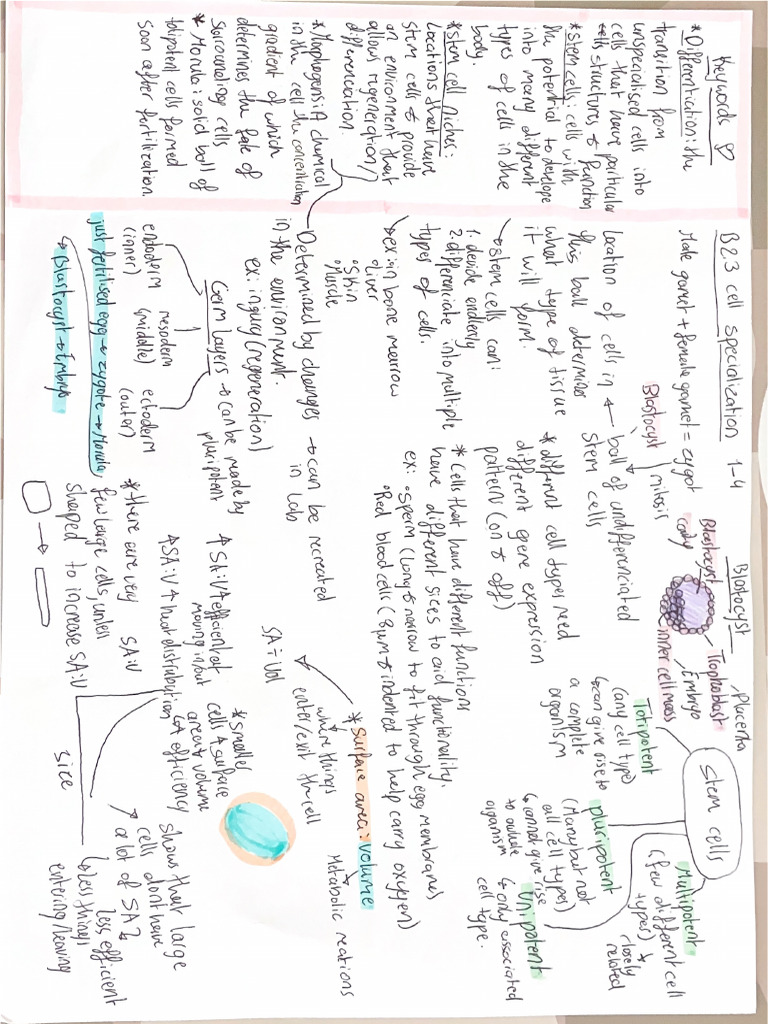 Keywords
*Differentiation: the
transition from
unspecialised cells into
cells that have particular
structures & function
*stem cells: cells with
the potential to develope
into many different
types of cells in the
body.
*stem cell niches:
locations that have
stem cells & provide
an environment that
allows regeneration/
differentiation.
*Morphogens: A chemical
in the cell the concentration
gradient of which
determines the fate of
surrounding cells
*Morula: solid ball of
totipotent cells formed
soon after fertilization.
B2.3 cell specialization 1-4
Male gamet + female gamet = zygot
mitosis
Blastocyst
ball of undifferenciated
stem cells
location of cells in
this ball determines
what type of tissue
it will form.
→stem cells can:
1. devide endlenly
2. differenciate into multiple
types of cells.
→ex: in bone marrow
◦liver
◦Skin
◦Muscle
Determined by changes → can be recreated
in the environment. in lab
ex: injury (regeneration)
Germ layers → can be made by
pluripotent
endoderm mesoderm ectoderm
(inner) (middle) (outer)
just fertilised egg → zygote → Morula
→ Blastocyst → Embryo
Blastocyst
Blastocyst
cavity
Placenta
Trophoblast
Embryo
inner cell mass
*different cell types need
different gene expression
pattern (on & off)
*Cells that have different functions
have different sices to aid functionality.
ex: ◦Sperm (long & narrow to fit through egg membranes)
◦Red blood cells (8µm & indented to help carry oxygen)
Stem cells
Totipotent
(any cell type)
↳can give rise to
a complete
organism
pluripotent
(Many but not
all cell types)
↳cannot give rise
to a whole
organism
Unipotent
↳only associated
cell type.
Multipotent
(few different cell
types) ↳
closely
related
*Surface area: Volume
where things
enter/exit the cell
Metabolic reactions
SA ÷ Vol
*smaller
cells ↑ surface
area ↓ volume
↳↑ efficiency
↑ SA:V ↑ efficient at
moving in/out
↑SA:V ↑ heat distribution
*there are very
few large cells, unless
shaped to increase SA:V
SA:V
size
shows that large
cells dont have
a lot of SA?
↳less efficient
↳less things
entering/leaving